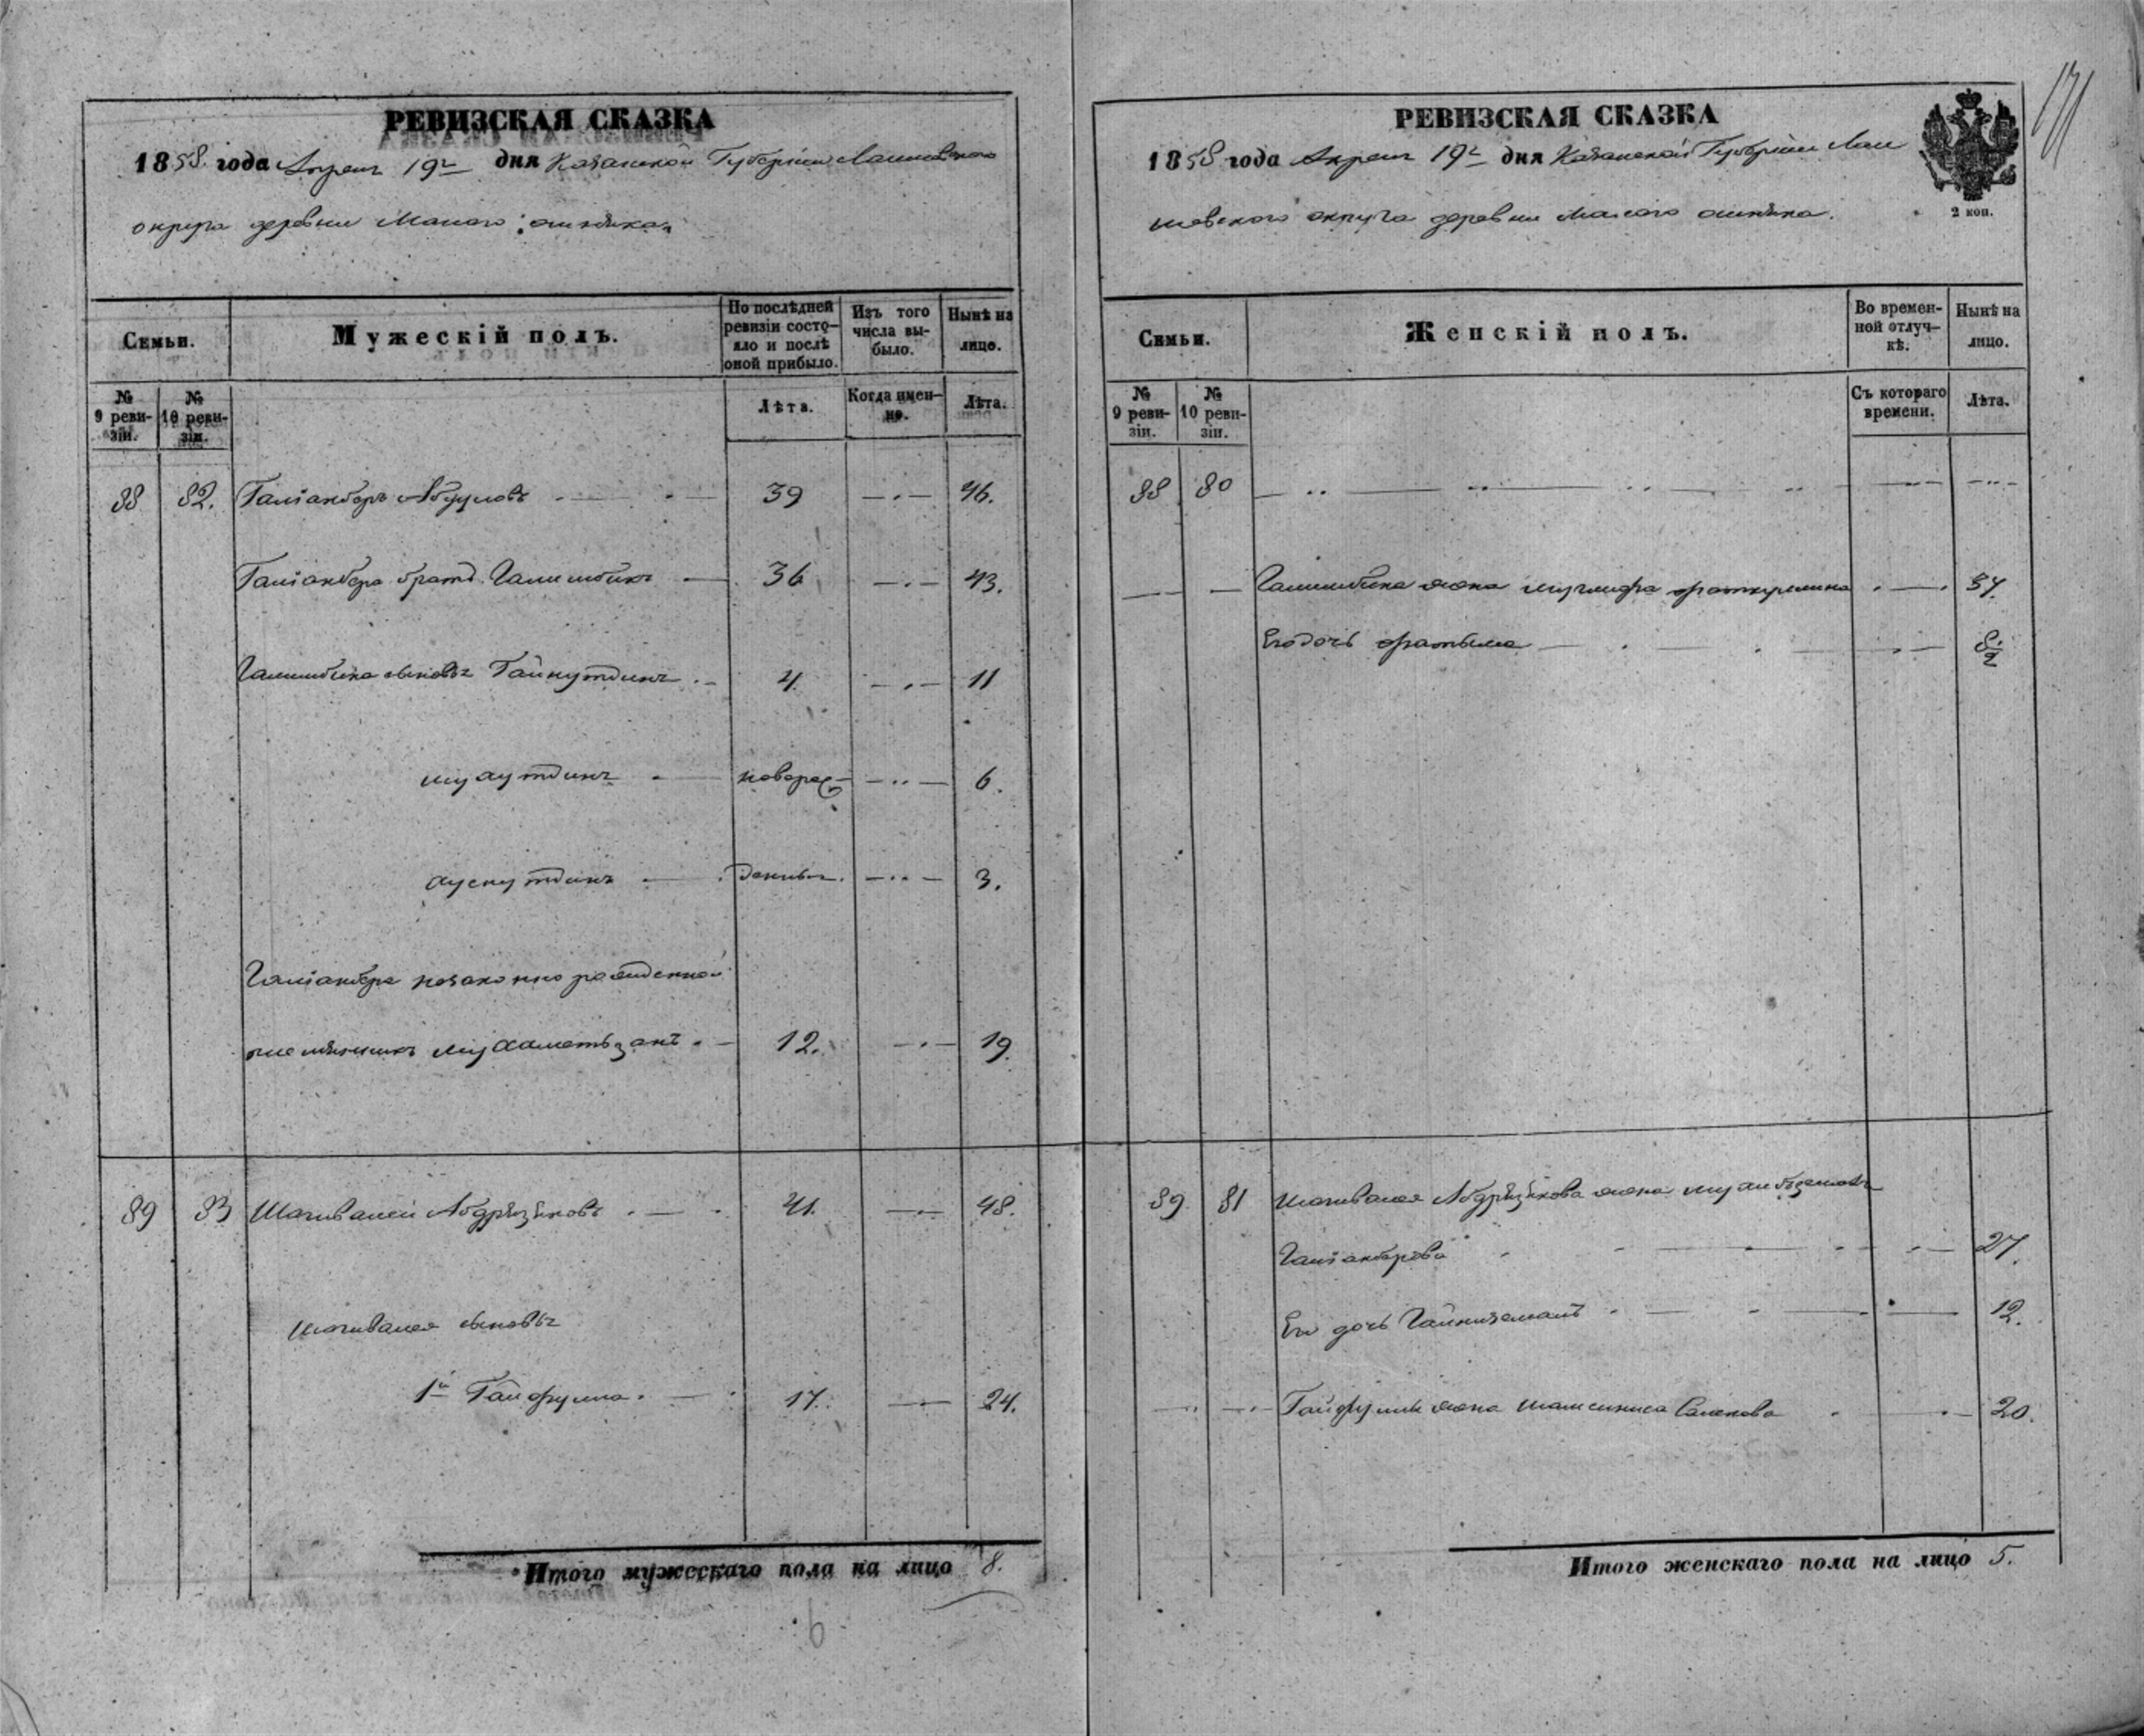 РЕВИЗСКАЯ СКАЗКА
1858 года Апреля 19го дня Казанской Губернии Лаишевского
округа деревни Малаго ошняка
Семьи.
Мужескій полъ.
По послѣдней ревизіи состояло и послѣ оной прибыло.
Изъ того числа выбыло.
Нынѣ на лицо.
№ 9 ревизіи.
№ 10 ревизіи.
Лѣта.
Когда именно.
Лѣта.
88 82. Галіакберъ Абдуловъ 39 46.
Галіакбера братъ Галимбикъ 36 43.
Галимбика сыновья Гайнутдинъ 4. 11
новорож 6.
тоже 3.
Галіакбера незаконнорожденной
племянникъ Мухаметьзянъ 12. 19.
89 83 Шагивалей Абдрязяковъ 41. 48.
Шагивалея сыновья
1й Гайфулла 17. 24.
Итого мужескаго пола на лицо 8.
РЕВИЗСКАЯ СКАЗКА
1858 года Апреля 19го дня Казанской Губернии Лаи
шевского округа деревни Малаго ошняка.
2 коп.
Семьи.
Женскій полъ.
Во временной отлучкѣ.
Нынѣ на лицо.
№ 9 ревизіи.
№ 10 ревизіи.
Съ котораго времени.
Лѣта.
88 80
Галимбика жена 37.
Его дочь Фатыма
89 81 Шагивалея Абдрязякова жена
Галіакберова 27.
Его дочь Гайнизямалъ 12.
Гайфуллы жена Шамсиниса 20.
Итого женскаго пола на лицо 5.